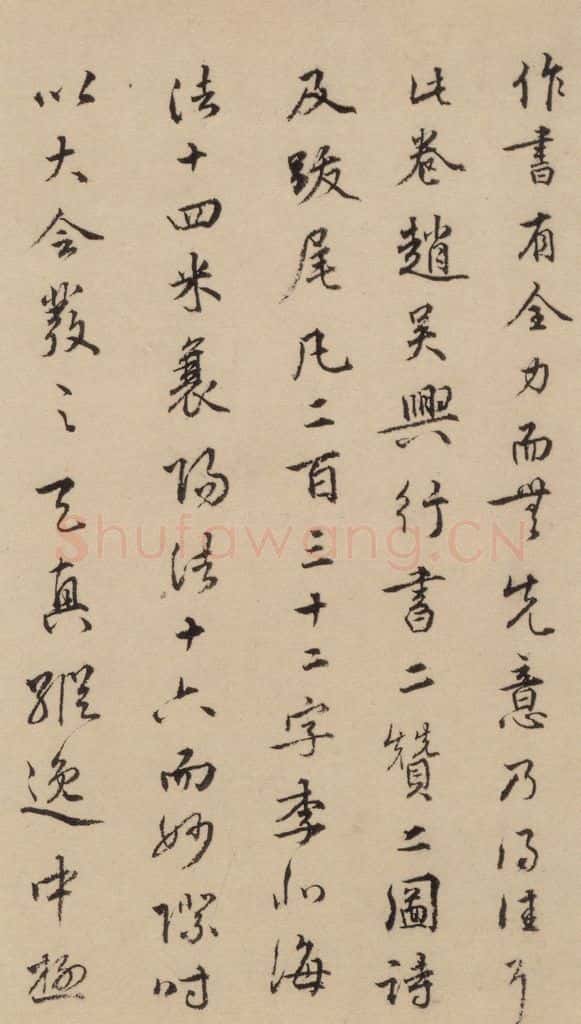 作書有全力而無先意乃得佳耳
此卷趙吳興行書二贊二圖詩
及跋尾凡二百三十二字李北海
法十四米襄陽法十六而妙際時
以大令發之天真縱逸中極
Shufawang.CN